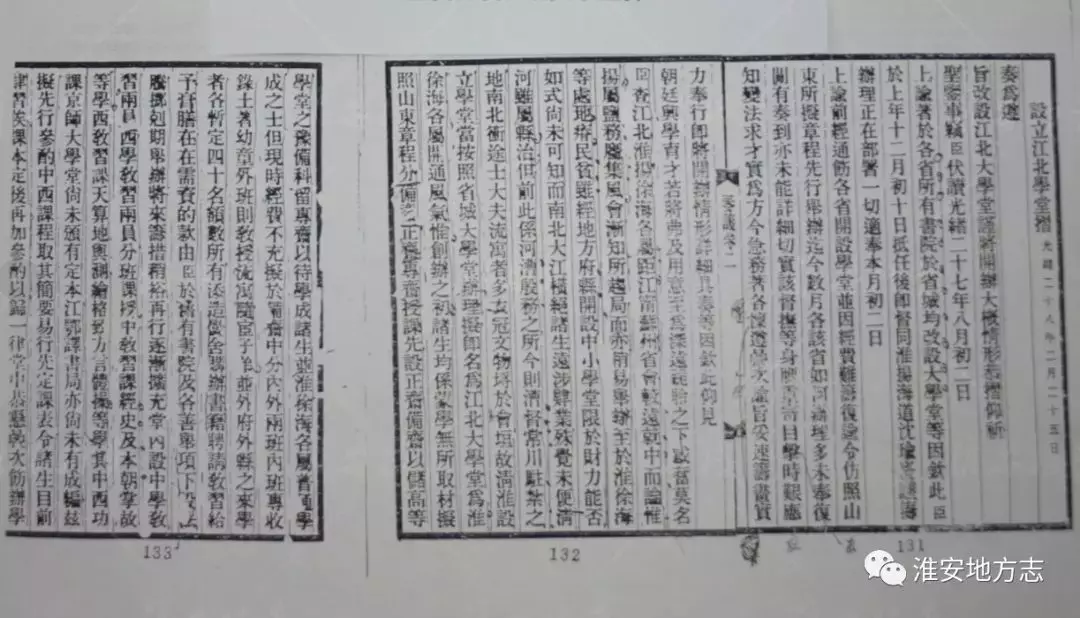 設立江北學堂摺 光緒二十八年二月二十五日
奏爲遵
旨改設江北大學堂謹將開辦大槪情形恭摺仰祈
聖鑒事竊臣伏讀光緒二十七年八月初二日
上諭著於各省所有書院於省城均改設大學堂等因欽此臣
於上年十二月初十日抵任後即督同淮揚海道沈瑜慶議籌
辦理正在部署一切適奉本月初二日
上諭前經通飭各省開設學堂並因經費難籌復諭令仿照山
東所擬章程先行舉辦迄今數月各該省如何辦理多未奉復
間有奏到亦未能詳細切實該督撫等身膺 目擊時艱應
知變法求才實爲方今急務著各懍遵 次諭旨妥速籌畫實
力奉行即將開辦情形詳細具奏等因欽此仰見
朝廷興學育才若將弗及用意至爲深遠 之下感奮莫名
臣查江北淮揚徐海各屬距江甯蘇州省會較遠就中而論惟
揚屬鹽務麕集風會漸知所趨局面亦稍易舉辦至於淮徐海
等處地瘠民貧雖經地方府縣開設中小學堂限於財力能否
如式尚未可知而南北大江橫經諸生遠涉肄業殊覺未便清
河雖屬縣治但前此係河漕殷務之所今則漕督常川駐紮之
地南北衝途士大夫流寓者多衣冠文物埒於會垣故清淮設
立學堂當按照省城大學堂辦理擬即名爲江北大學堂爲淮
徐海各屬開通風氣惟創辦之初諸生均係蒙學無所取材擬
照山東章程分備 正 專齋授課先設正齋備齋以儲高等
學堂之豫備科留專齋以待學成諸生並淮徐海各屬普通學
成之士但現時經費不充擬於備齋中分內外兩班內班專收
錄土著幼童外班則教授流寓隨宦子弟並外府外縣之來學
者各暫定四十名額數所有添造黌舍購辦書籍聘請教習給
予膏膳在在需資的款由臣於舊有書院及各善舉項下設法
騰挪剋期舉辦將來籌措稍裕再行逐漸擴充堂內設中學教
習兩員西學教習兩員分班課授中教習課經史及本朝掌故
等學西教習課天算地輿測繪格致方言體操等學其中西功
課京師大學堂尚未頒有定本江鄂譯書局亦尚未有成編茲
擬先行參酌中西課程取其簡要易行先定課表令諸生目前
肄習俟課本定後再加參酌以歸一律堂中恭懸執次飭辦學
奏議卷二
133
132
131
淮安地方志